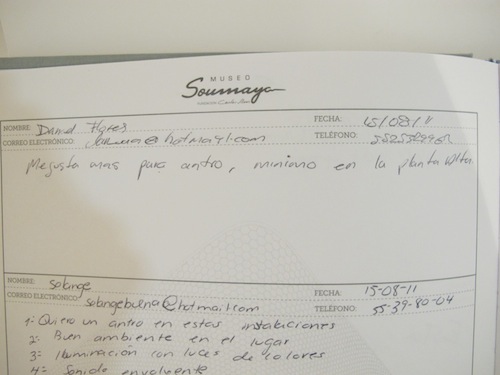 MUSEO
Soumaya
NOMBRE: Daniel Flores FECHA: 15/08/11
CORREO ELECTRÓNICO: @hotmayl.com TELÉFONO:
Megusta mas para antro, minimo en la planta Alta.
NOMBRE: solange FECHA: 15-08-11
CORREO ELECTRÓNICO: solangebuena@hotmail.com TELÉFONO: 55-39-80-04
1: Quiero un antro en estas instalaciones
2: Buen ambiente en el lugar
3: Iluminación con luces de colores
4: Sonido envolvente